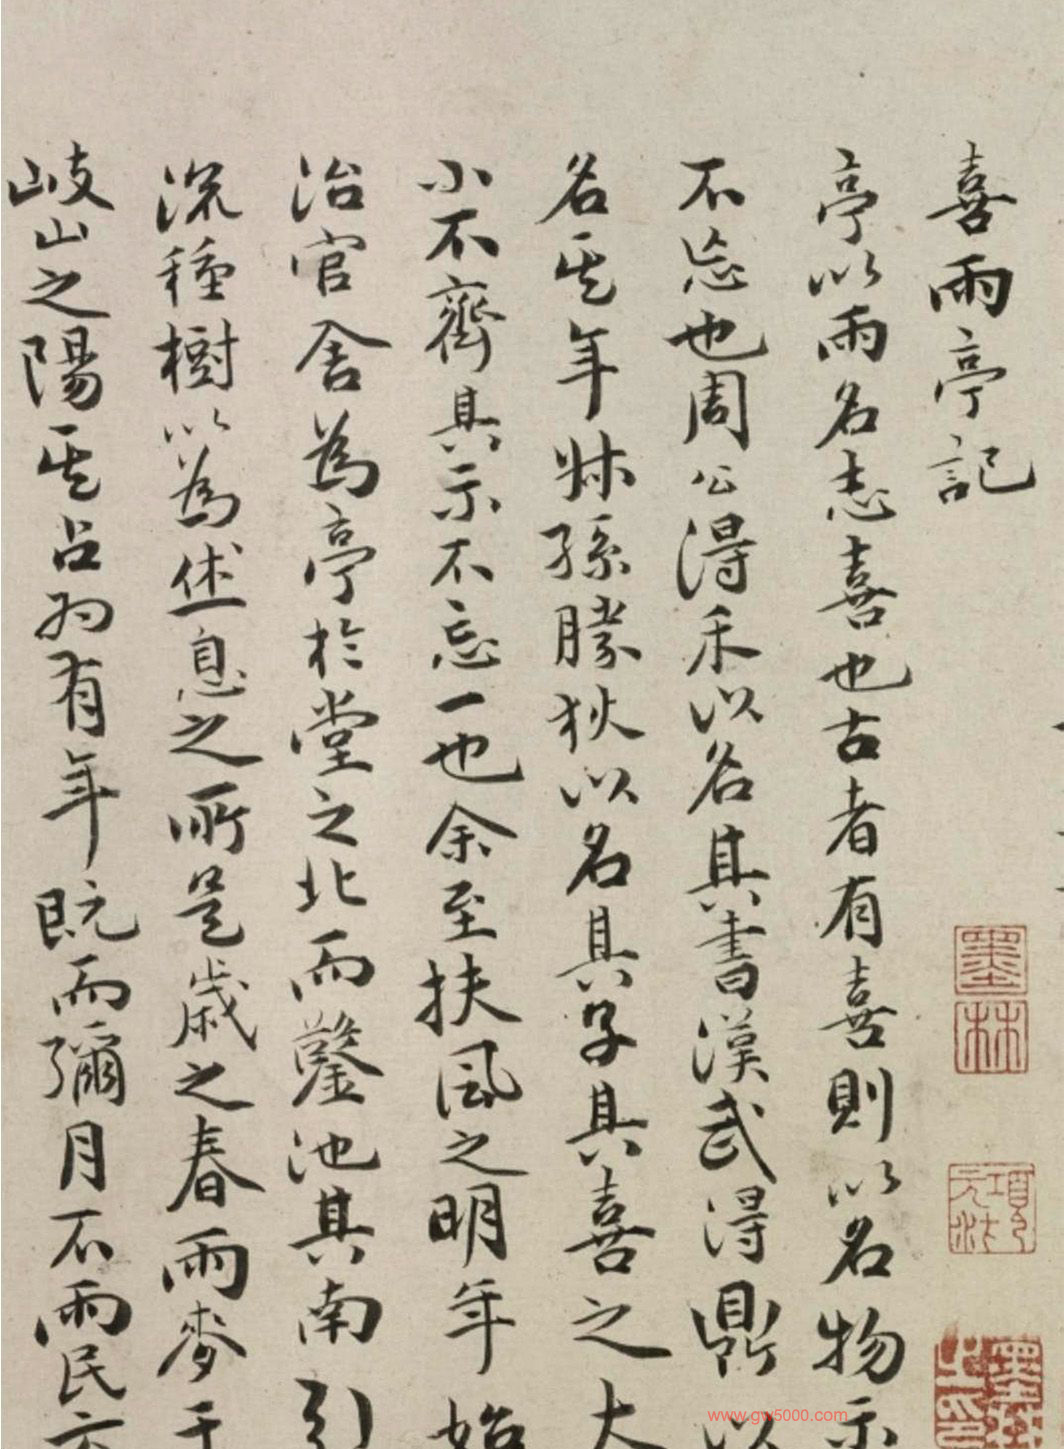 喜雨亭記
亭以雨名志喜也古者有喜則以名物示
不忘也周公得禾以名其書漢武得鼎以
名其年叔孫勝狄以名其子其喜之大
小不齊其示不忘一也余至扶風之明年始
治官舍為亭於堂之北而鑿池其南引
流種樹以為休息之所是歲之春雨麥于
岐山之陽其占為有年既而彌月不雨民方
墨林
項元汴
www.gw5000.com